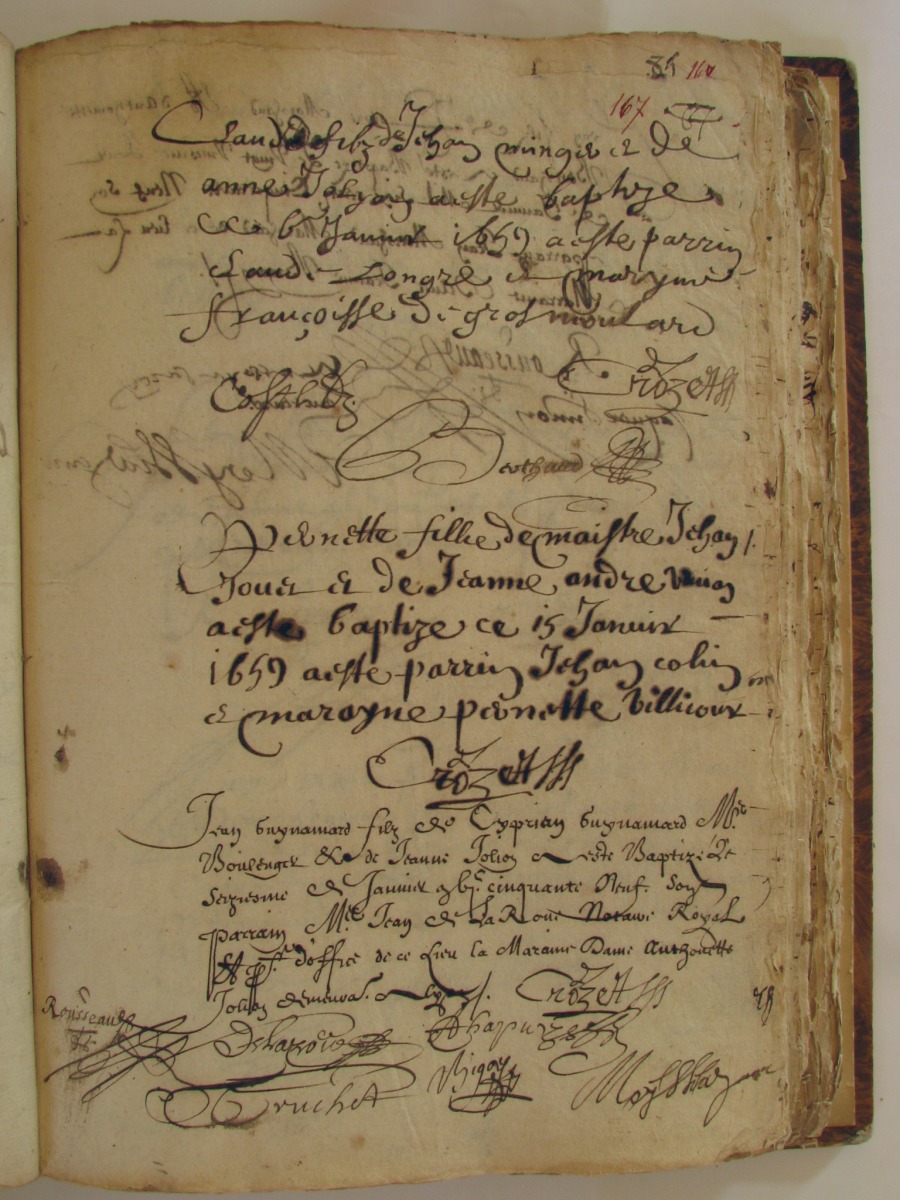 85 160
167 67
Claude filz de Jehan minger et de
anne Jolyon aeste baptize
ce 6 Janvier 1659 aeste parrin
claude Longre et marayne
françoisse de gros moulard
Crozet
Berthaud
Pernette fille de maistre Jehan
Jouet et de Jeanne andre
aeste baptize ce 15 Janvier
1659 aeste parrin Jehan colin
et marayne pernette Villicour
Crozet
Jean Guynamard filz de Cyprian Guynamard Mre
Boulenger & de Jeanne Jolion a este Baptizé Le
Seiziesme de Janvier cinquante Neuf. Son
parrain Mre Jean de La Roue Notaire Royal
d'office de ce Lieu la Maraine Dame Anthoinette
Jolion Crozet
Rousseau
Delaroue Chapuy
Truchet Bigay